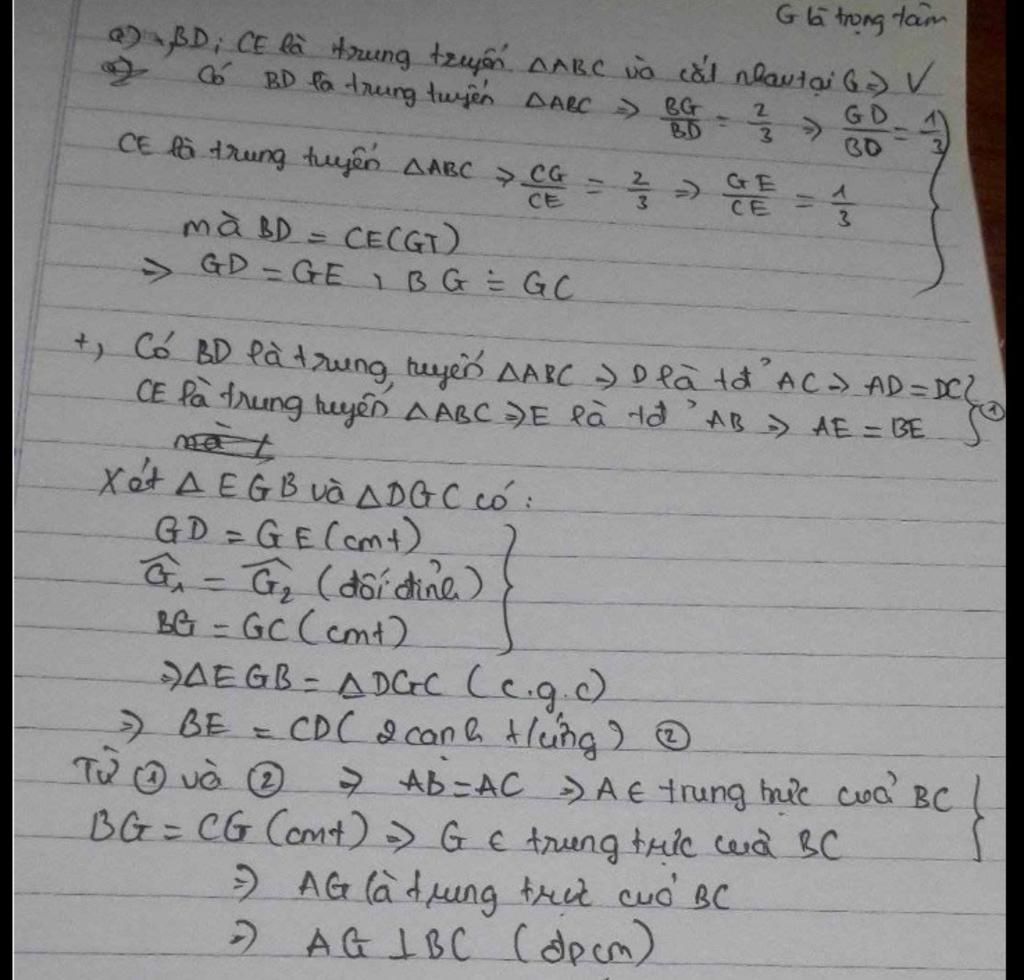 G là trọng tâm
a) BD; CE là trung tuyến ΔABC và cắt nhau tại G => V
Có BD là trung tuyến ΔABC => BG/BD = 2/3 => GD/BD = 1/3
CE là trung tuyến ΔABC => CG/CE = 2/3 => GE/CE = 1/3
mà BD = CE (GT)
=> GD = GE, BG = GC
+, Có BD là trung tuyến ΔABC => D là tđ' AC => AD = DC
CE là trung tuyến ΔABC => E là tđ' AB => AE = BE ①
Xét ΔEGB và ΔDGC có:
GD = GE (cmt)
Ĝ₁ = Ĝ₂ (đối đỉnh)
BG = GC (cmt)
=> ΔEGB = ΔDGC (c.g.c)
=> BE = CD (2 cạnh t/ứng) ②
Từ ① và ② => AB = AC => A ∈ trung trực của BC
BG = CG (cmt) => G ∈ trung trực của BC
=> AG là trung trực của BC
=> AG ⊥ BC (đpcm)